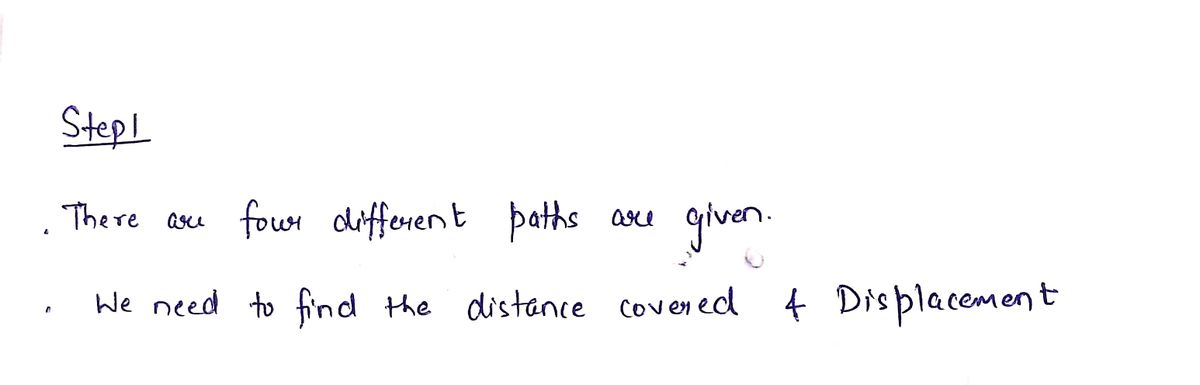 Step1
. There are four different paths are given.
. We need to find the distance covered & Displacement